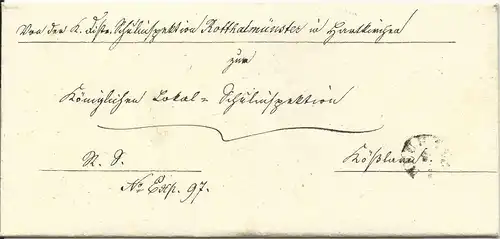 Von der K. Distr. Schulinspektion Rotthalmünster in Hartkirchen
zur
Königlichen Lokal = Schulinspektion
R. S.
Kößlarn.
No Exp. 97.